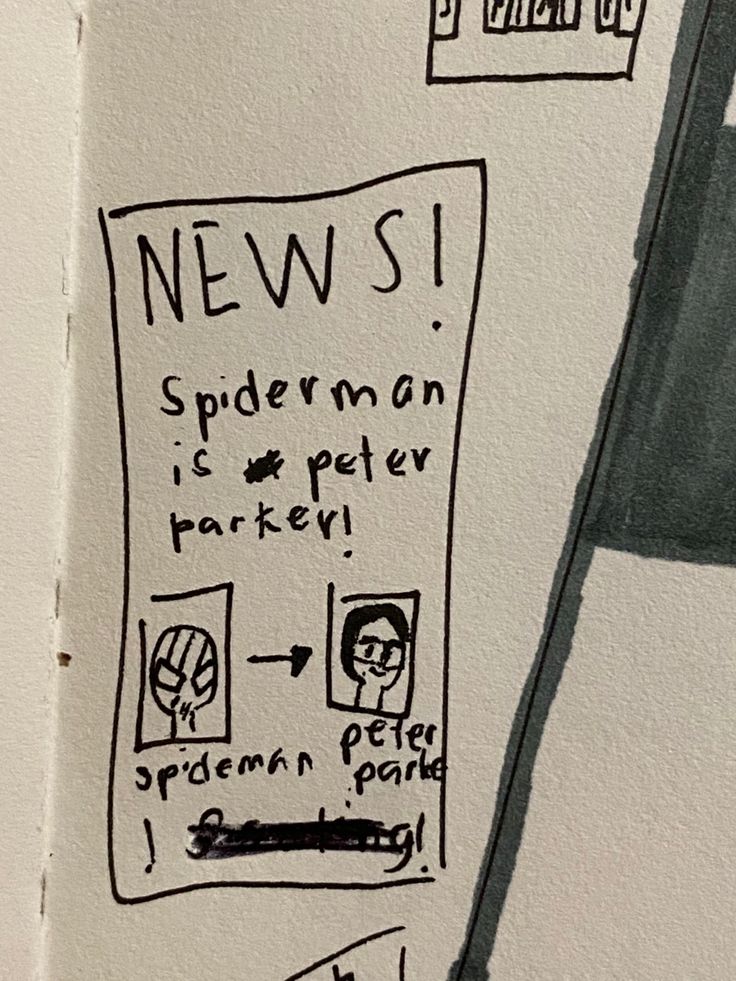 NEWS!
Spiderman
is peter
parker!
spideman
peter
parke
!